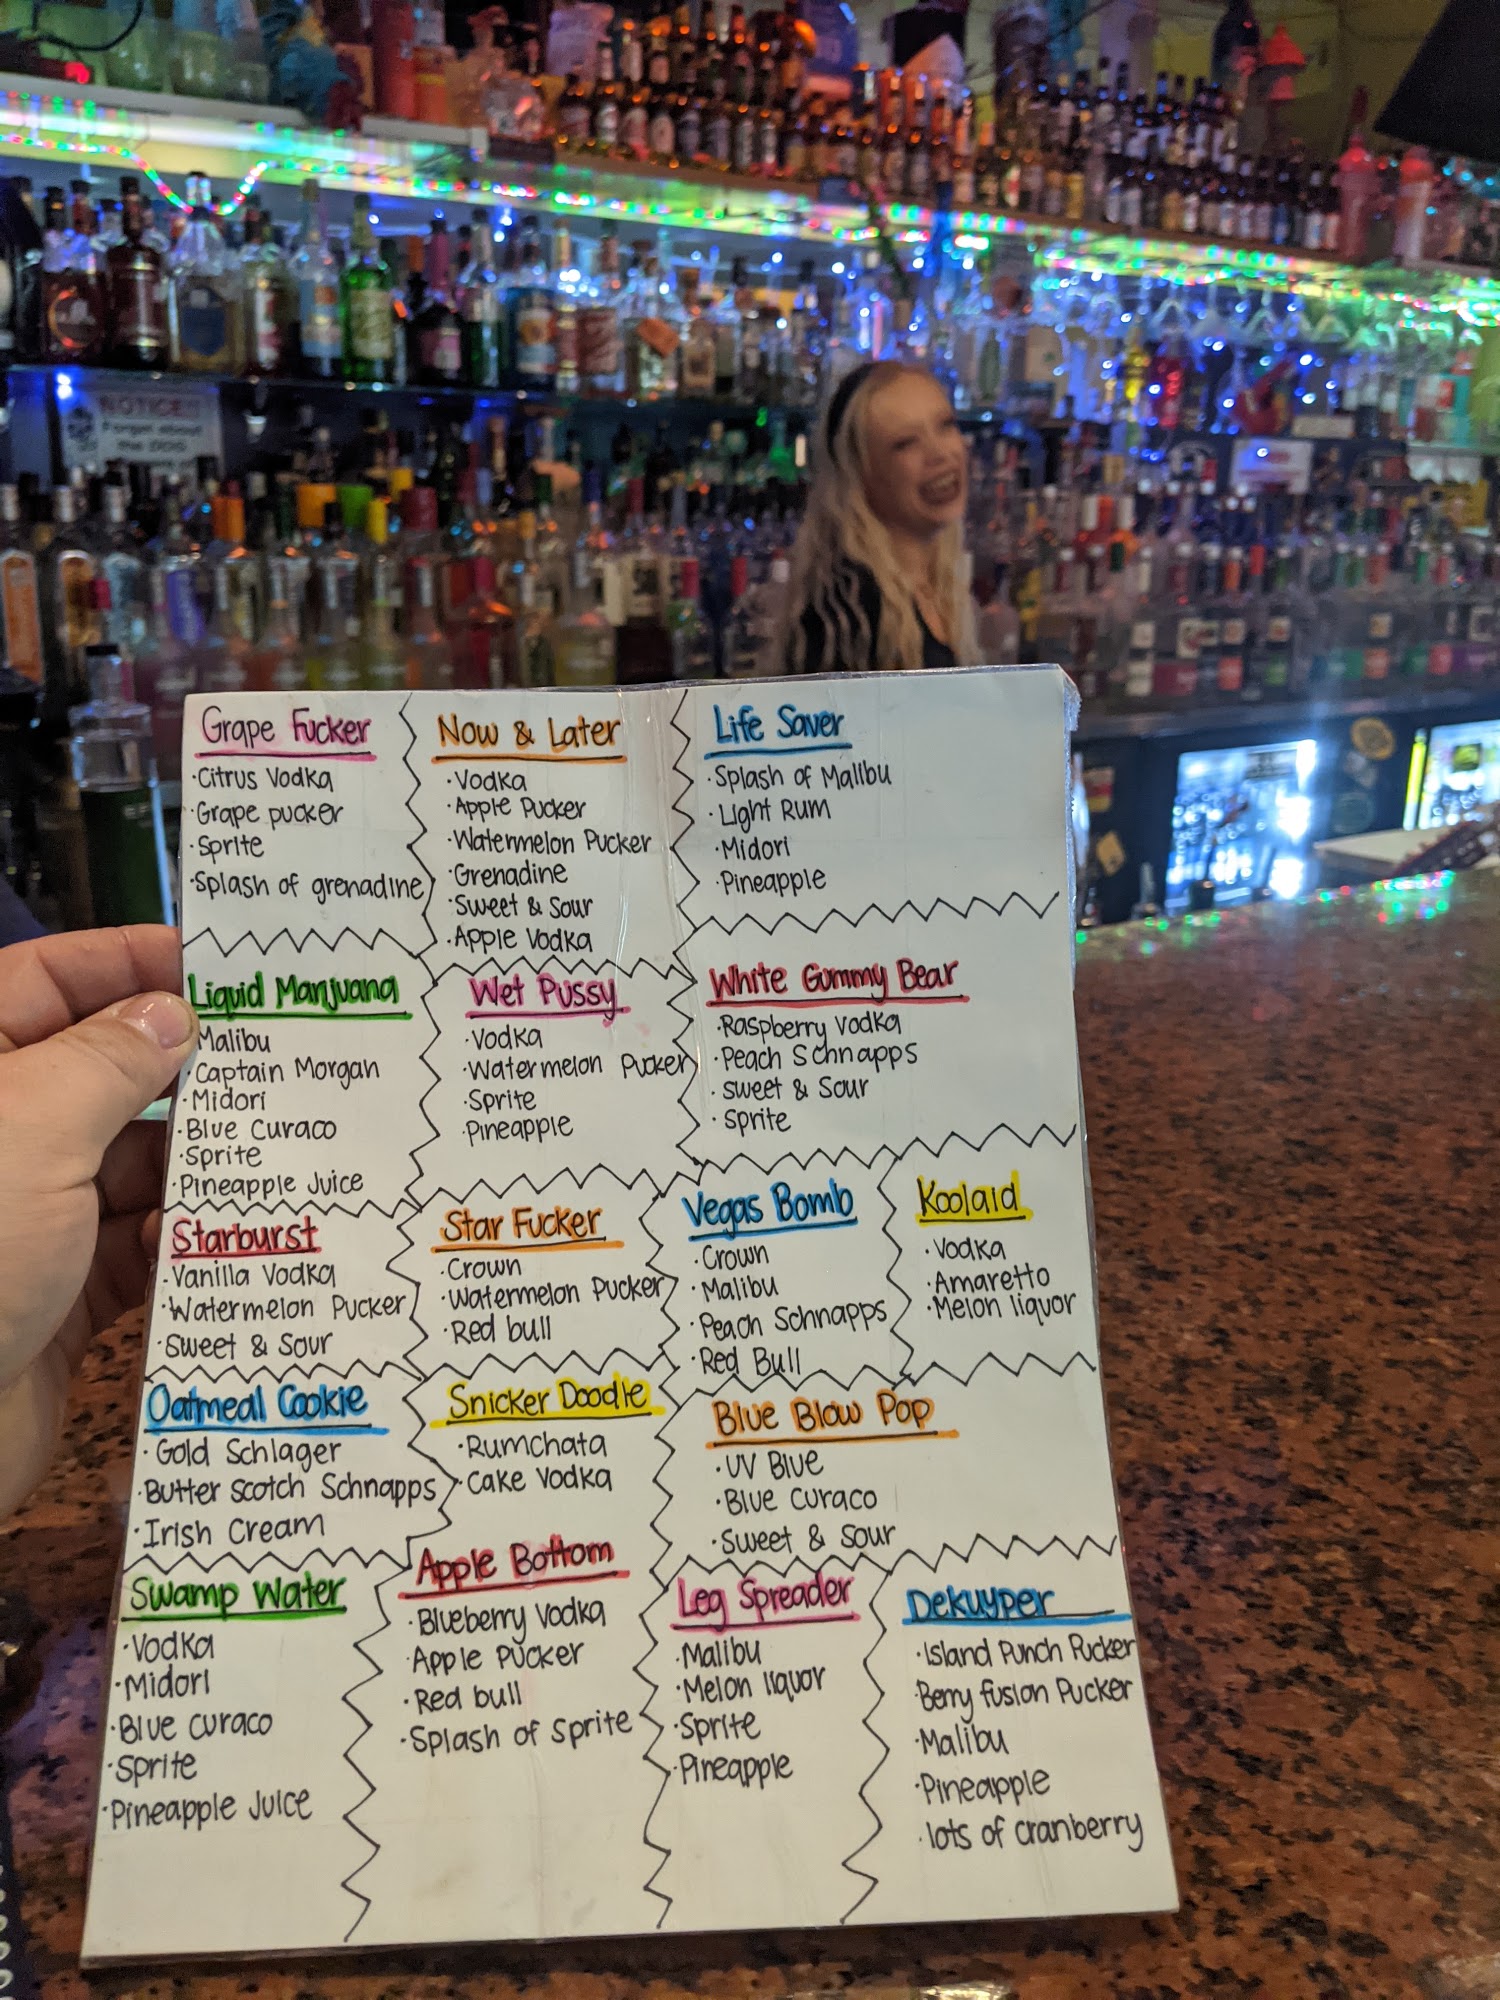 NOTICE:
Forget about
the DOG
Grape Fucker
·Citrus Vodka
·Grape pucker
·Sprite
·Splash of grenadine
Now & Later
·Vodka
·Apple Pucker
·Watermelon Pucker
·Grenadine
·Sweet & Sour
·Apple Vodka
Life Saver
·Splash of Malibu
·Light Rum
·Midori
·Pineapple
Liquid Marijuana
Malibu
·Captain Morgan
·Midori
·Blue Curaco
·Sprite
·Pineapple Juice
Wet Pussy
·Vodka
·Watermelon Pucker
·Sprite
·Pineapple
White Gummy Bear
·Raspberry Vodka
·Peach Schnapps
·Sweet & Sour
·Sprite
Starburst
·Vanilla Vodka
·Watermelon Pucker
·Sweet & Sour
Star Fucker
·Crown
·Watermelon Pucker
·Red bull
Vegas Bomb
·Crown
·Malibu
·Peach Schnapps
·Red Bull
Koolaid
·Vodka
·Amaretto
·Melon liquor
Oatmeal Cookie
·Gold Schlager
·Butter scotch Schnapps
·Irish Cream
Snicker Doodle
·Rumchata
·Cake Vodka
Blue Blow Pop
·UV Blue
·Blue Curaco
·Sweet & Sour
Swamp Water
·Vodka
·Midori
·Blue Curaco
·Sprite
·Pineapple Juice
Apple Bottom
·Blueberry Vodka
·Apple Pucker
·Red bull
·Splash of Sprite
Leg Spreader
·Malibu
·Melon liquor
·Sprite
·Pineapple
Dekuyper
·Island Punch Pucker
·Berry fusion Pucker
·Malibu
·Pineapple
·lots of cranberry